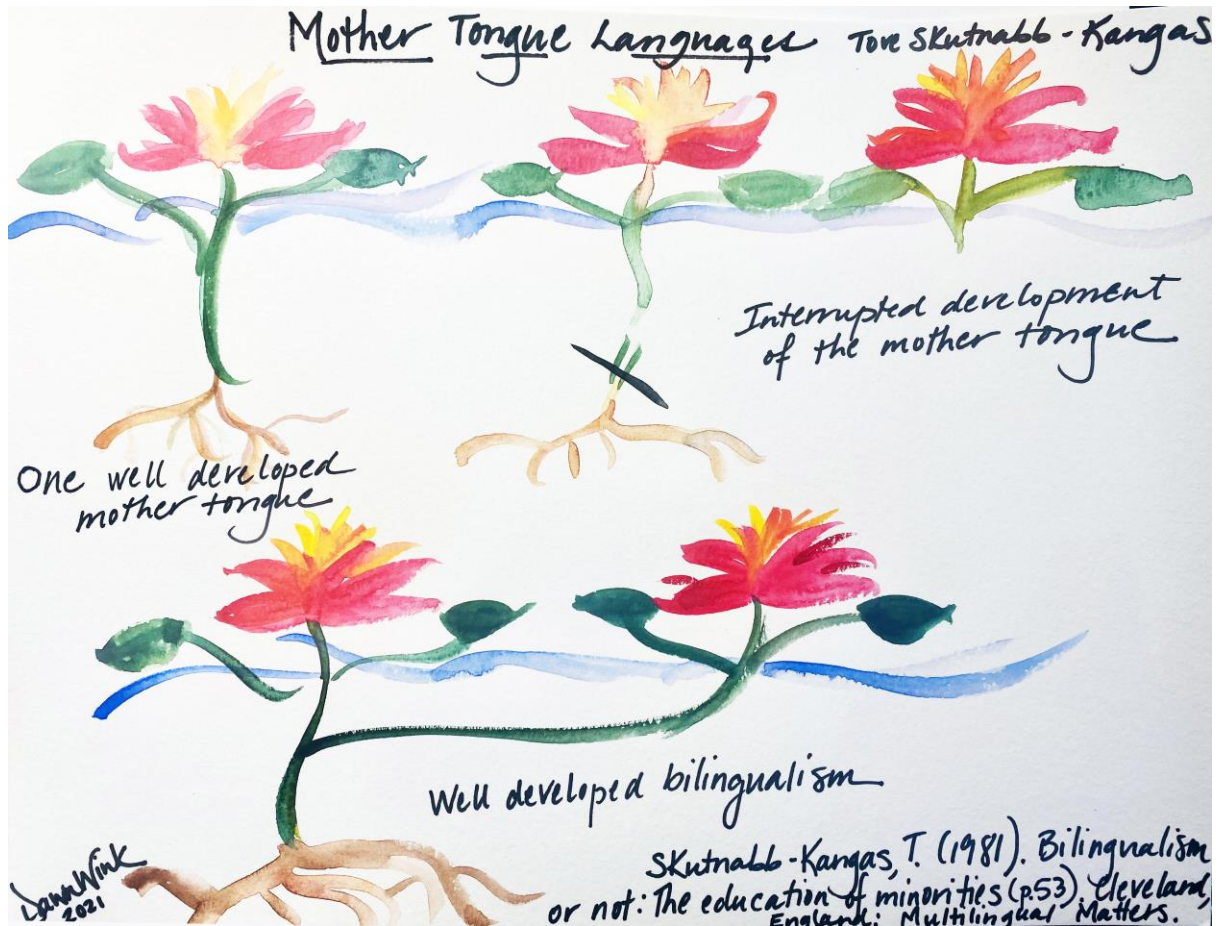 Mother Tongue Languages Tove Skutnabb-Kangas
Interrupted development
of the mother tongue
One well developed
mother tongue
Well developed bilingualism
Skutnabb-Kangas, T. (1981). Bilingualism
or not: The education of minorities (p.53). Cleveland,
England: Multilingual Matters.
Dawn Wink
2021